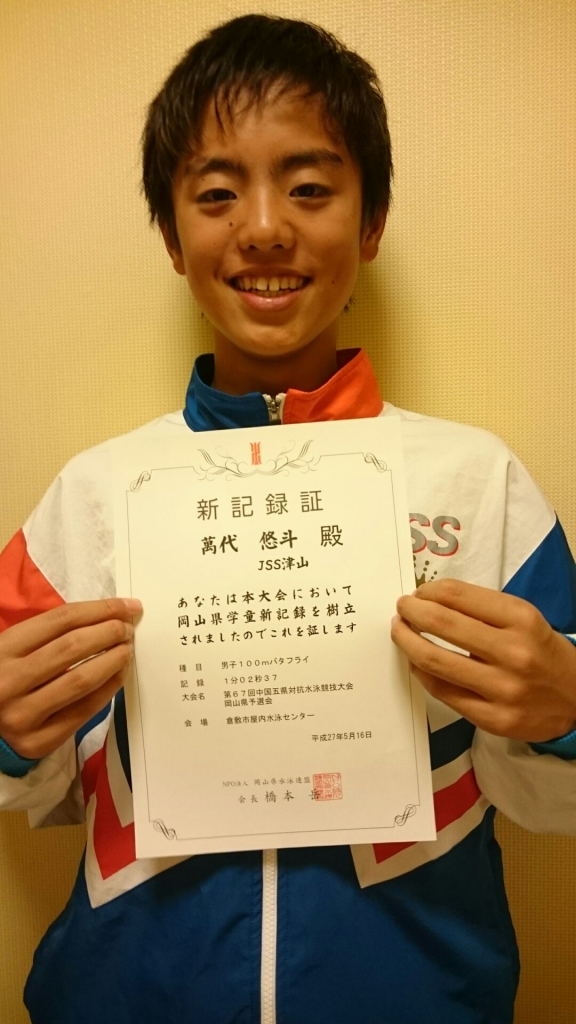 新記録証
萬代 悠斗 殿
JSS津山
SS
あなたは本大会において
岡山県学童新記録を樹立
されましたのでこれを証します
種 目 男子100mバタフライ
記 録 1分02秒37
大会名 第67回中国五県対抗水泳競技大会
岡山県予選会
会 場 倉敷市屋内水泳センター
平成27年5月16日
NPO法人 岡山県水泳連盟
会長 橋本 岳